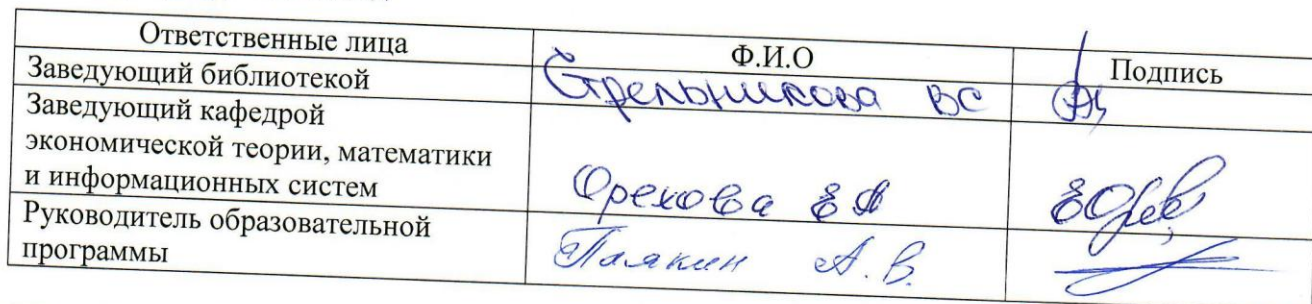 Ответственные лица Ф.И.О Подпись
Заведующий библиотекой Стрельникова ВС
Заведующий кафедрой
экономической теории, математики
и информационных систем Орехова Е А
Руководитель образовательной
программы А.В.